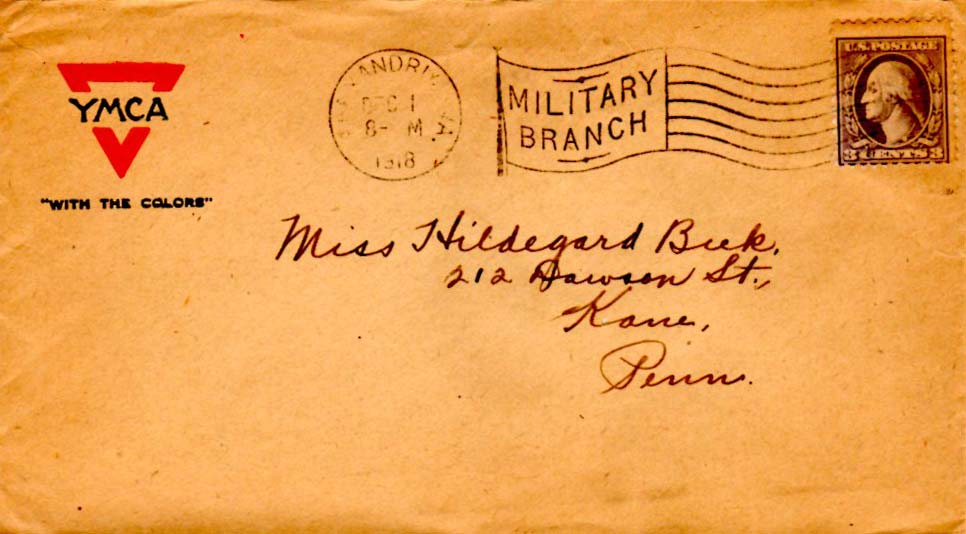 YMCA
"WITH THE COLORS"
DEC 1
8- M
1918
MILITARY
BRANCH
U.S. POSTAGE
3 CENTS 3
Miss Hildegard
212 Dawson St.,
Kane,
Penn.